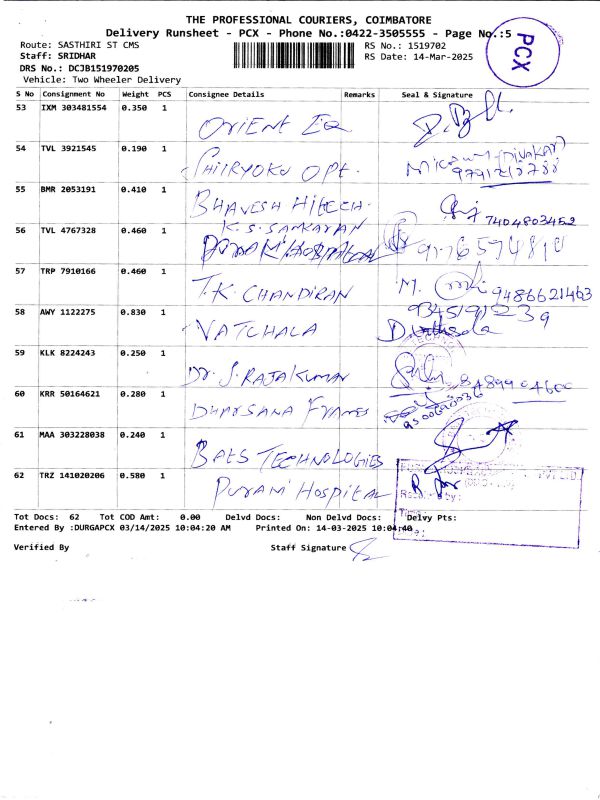 THE PROFESSIONAL COURIERS, COIMBATORE
Delivery Runsheet - PCX - Phone No.:0422-3505555 - Page No.:5
PCX
Route: SASTHIRI ST CMS
RS No.: 1519702
Staff: SRIDHAR
RS Date: 14-Mar-2025
DRS No.: DCJB151970205
Vehicle: Two Wheeler Delivery
S No Consignment No Weight PCS Consignee Details Remarks Seal & Signature
53 IXM 303481554 0.350 1
ORIENT EQ
54 TVL 3921545 0.190 1
SHIIRYOKU OPT.
(DIVAKAR)
55 BMR 2053191 0.410 1
BHAVESH HITECH.
7404803452
56 TVL 4767328 0.460 1
K.S. SANKARAN
9176574810
57 TRP 7910166 0.460 1
T.K. CHANDIRAN
M. 9486621463
58 AWY 1122275 0.830 1
VATCHALA
59 KLK 8224243 0.250 1
Dr. J. RAJAKUMAR
8489904600
60 KRR 50164621 0.280 1
DHARSANA FRAMES
61 MAA 303228038 0.240 1
BAES TECHNOLOGIES
62 TRZ 141020206 0.580 1
PURAM HOSPITAL
Tot Docs: 62 Tot COD Amt: 0.00 Delvd Docs: Non Delvd Docs: Delvy Pts:
Entered By :DURGAPCX 03/14/2025 10:04:20 AM Printed On: 14-03-2025 10:04:40
Verified By Staff Signature